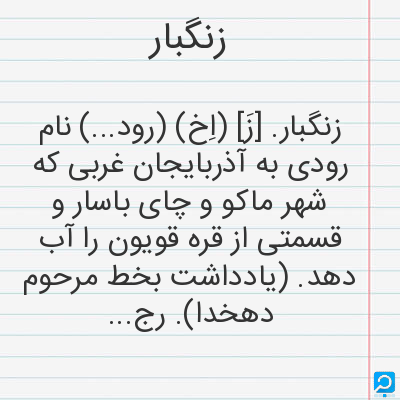 زنگبار
زنگبار. [زَ] (اِخ) (رود...) نام
رودی به آذربایجان غربی که
شهر ماکو و چای باسار و
قسمتی از قره قویون را آب
دهد. (یادداشت بخط مرحوم
دهخدا). رج...